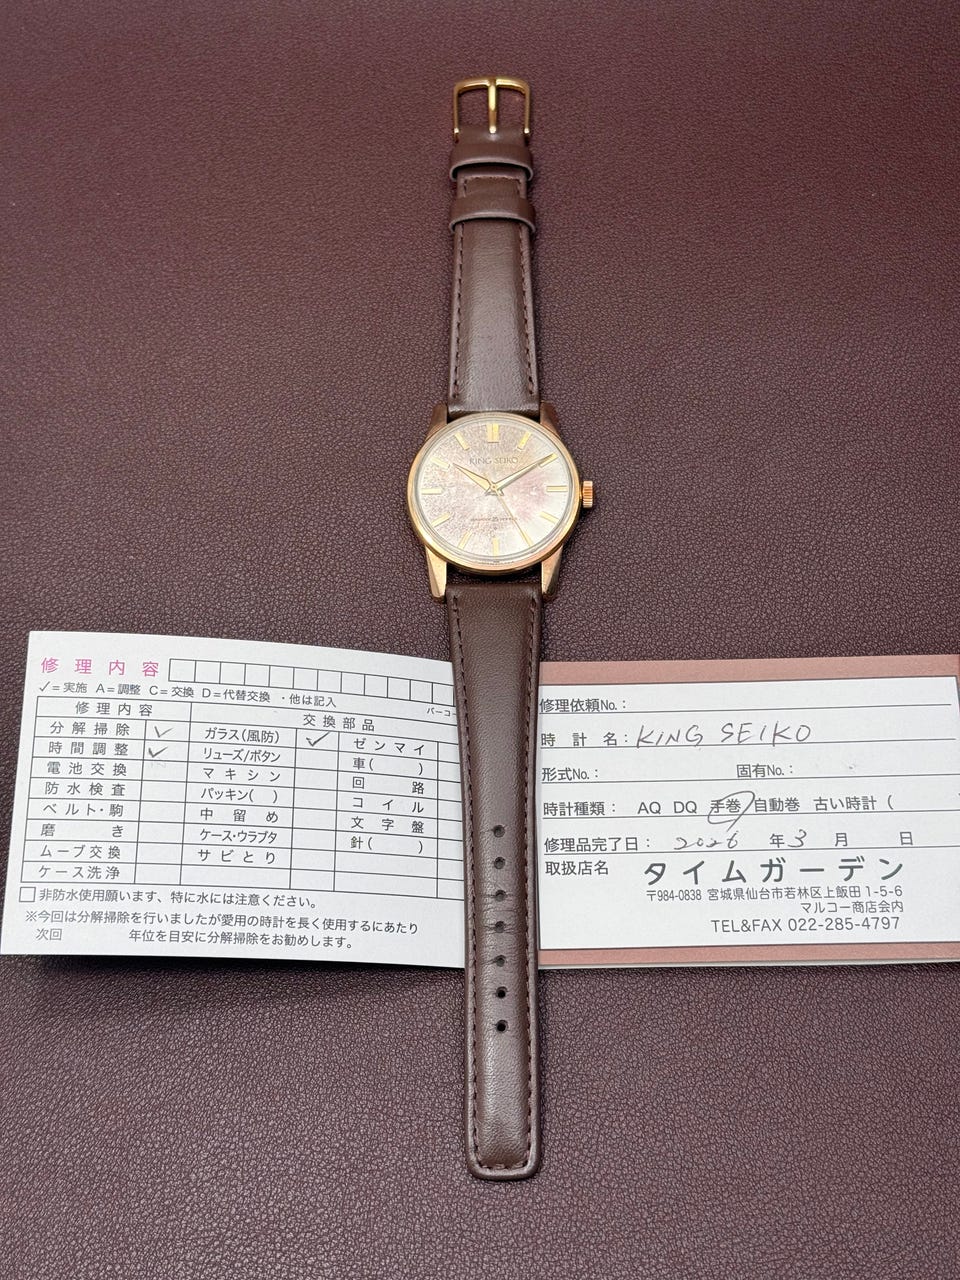 KING SEIKO
修理内容
✓=実施 A=調整 C=交換 D=代替交換 ・他は記入
バーコー
修理内容
交換部品
分解掃除 ✓
ガラス(風防) ✓
ゼンマイ
時間調整 ✓
リューズ/ボタン
車( )
電池交換
マキシン
回路
防水検査
パッキン( )
コイル
ベルト・駒
中留め
文字盤
磨き
ケース・ウラブタ
針( )
ムーブ交換
サビとり
ケース洗浄
非防水使用願います、特に水には注意ください。
※今回は分解掃除を行いましたが愛用の時計を長く使用するにあたり
次回 年位を目安に分解掃除をお勧めします。
修理依頼No.:
時計名: KING SEIKO
形式No.: 固有No.:
時計種類: AQ DQ 手巻 自動巻 古い時計(
修理品完了日: 2026 年 3 月 日
取扱店名 タイムガーデン
〒984-0838 宮城県仙台市若林区上飯田1-5-6
マルコー商店会内
TEL&FAX 022-285-4797